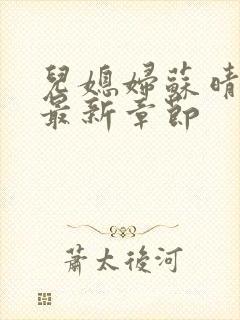 兒媳婦蘇晴
最新章節
蕭太後河